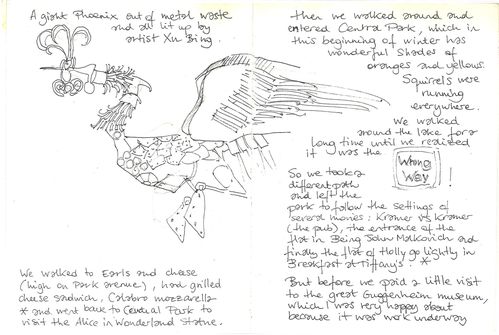 A giant Phoenix out of metal waste
and all lit up by
artist Xu Bing.
We walked to Earls and cheese
(high on Park avenue), had grilled
cheese sandwich, Calabro mozzarella
* and went back to Central Park to
visit the Alice in Wonderland Statue.
then we walked around and
entered Central Park, which in
this beginning of winter has
wonderful shades of
oranges and yellows.
Squirrels were
running
everywhere.
We walked
around the lake for a
long time until we realized
it was the
Wrong
Way
!
So we took a
different path
and left the
park to follow the settings of
several movies: Kramer vs Kramer
(the pub), the entrance of the
flat in Being John Malkovich and
finally the flat of Holly go lightly in
Breakfast at Tiffany's. *
But before we paid a little visit
to the great Guggenheim museum,
which I was very happy about
because it was
underway